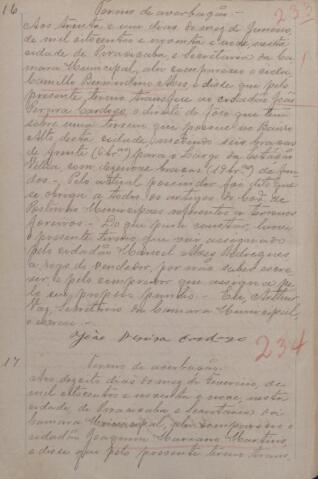 16 Termo de averbação.— 233
Aos trinta e um dias do mez de Janeiro,
de mil oitocentos e noventa e nove, nesta
cidade de Piracicaba e Secretaria da Ca-
mara Municipal, ahi compareceo o cidadão
Camillo Bernardino Alves, e disse que pelo
presente termo transfere ao cidadão João
Pereira Cardozo, o direito de foro que tem
sobre um terreno que possue no Bairro
Alto desta cidade, medindo seis braças
de frente (6 brs) para o Largo da Estação
Velha com dezenove braças (19 brs) de fun-
dos. Pelo actual possuidor foi dito que
se obriga a todos os artigos do Cod. de
Posturas Municipaes referentes a terrenos
foreiros. Do que para constar, lavrei
o presente termo que vae assignado
pelo cidadão Manoel Alves Rodrigues,
a rogo do vendedor, por não saber escre-
ver e pelo comprador que assigna pe-
lo seu proprio punho. Eu, Arthur
Vaz, Secretario da Camara Municipal,
o escrevi.
João Pereira Cardozo
234
17. Termo de averbação.
Aos dezoito dias do mez de Fevereiro, de
mil oitocentos e noventa e nove, nesta
cidade de Piracicaba e Secretaria da
Camara Municipal, compareceu o
cidadão Joaquim Mariano Martins,
e disse que pelo presente termo trans-